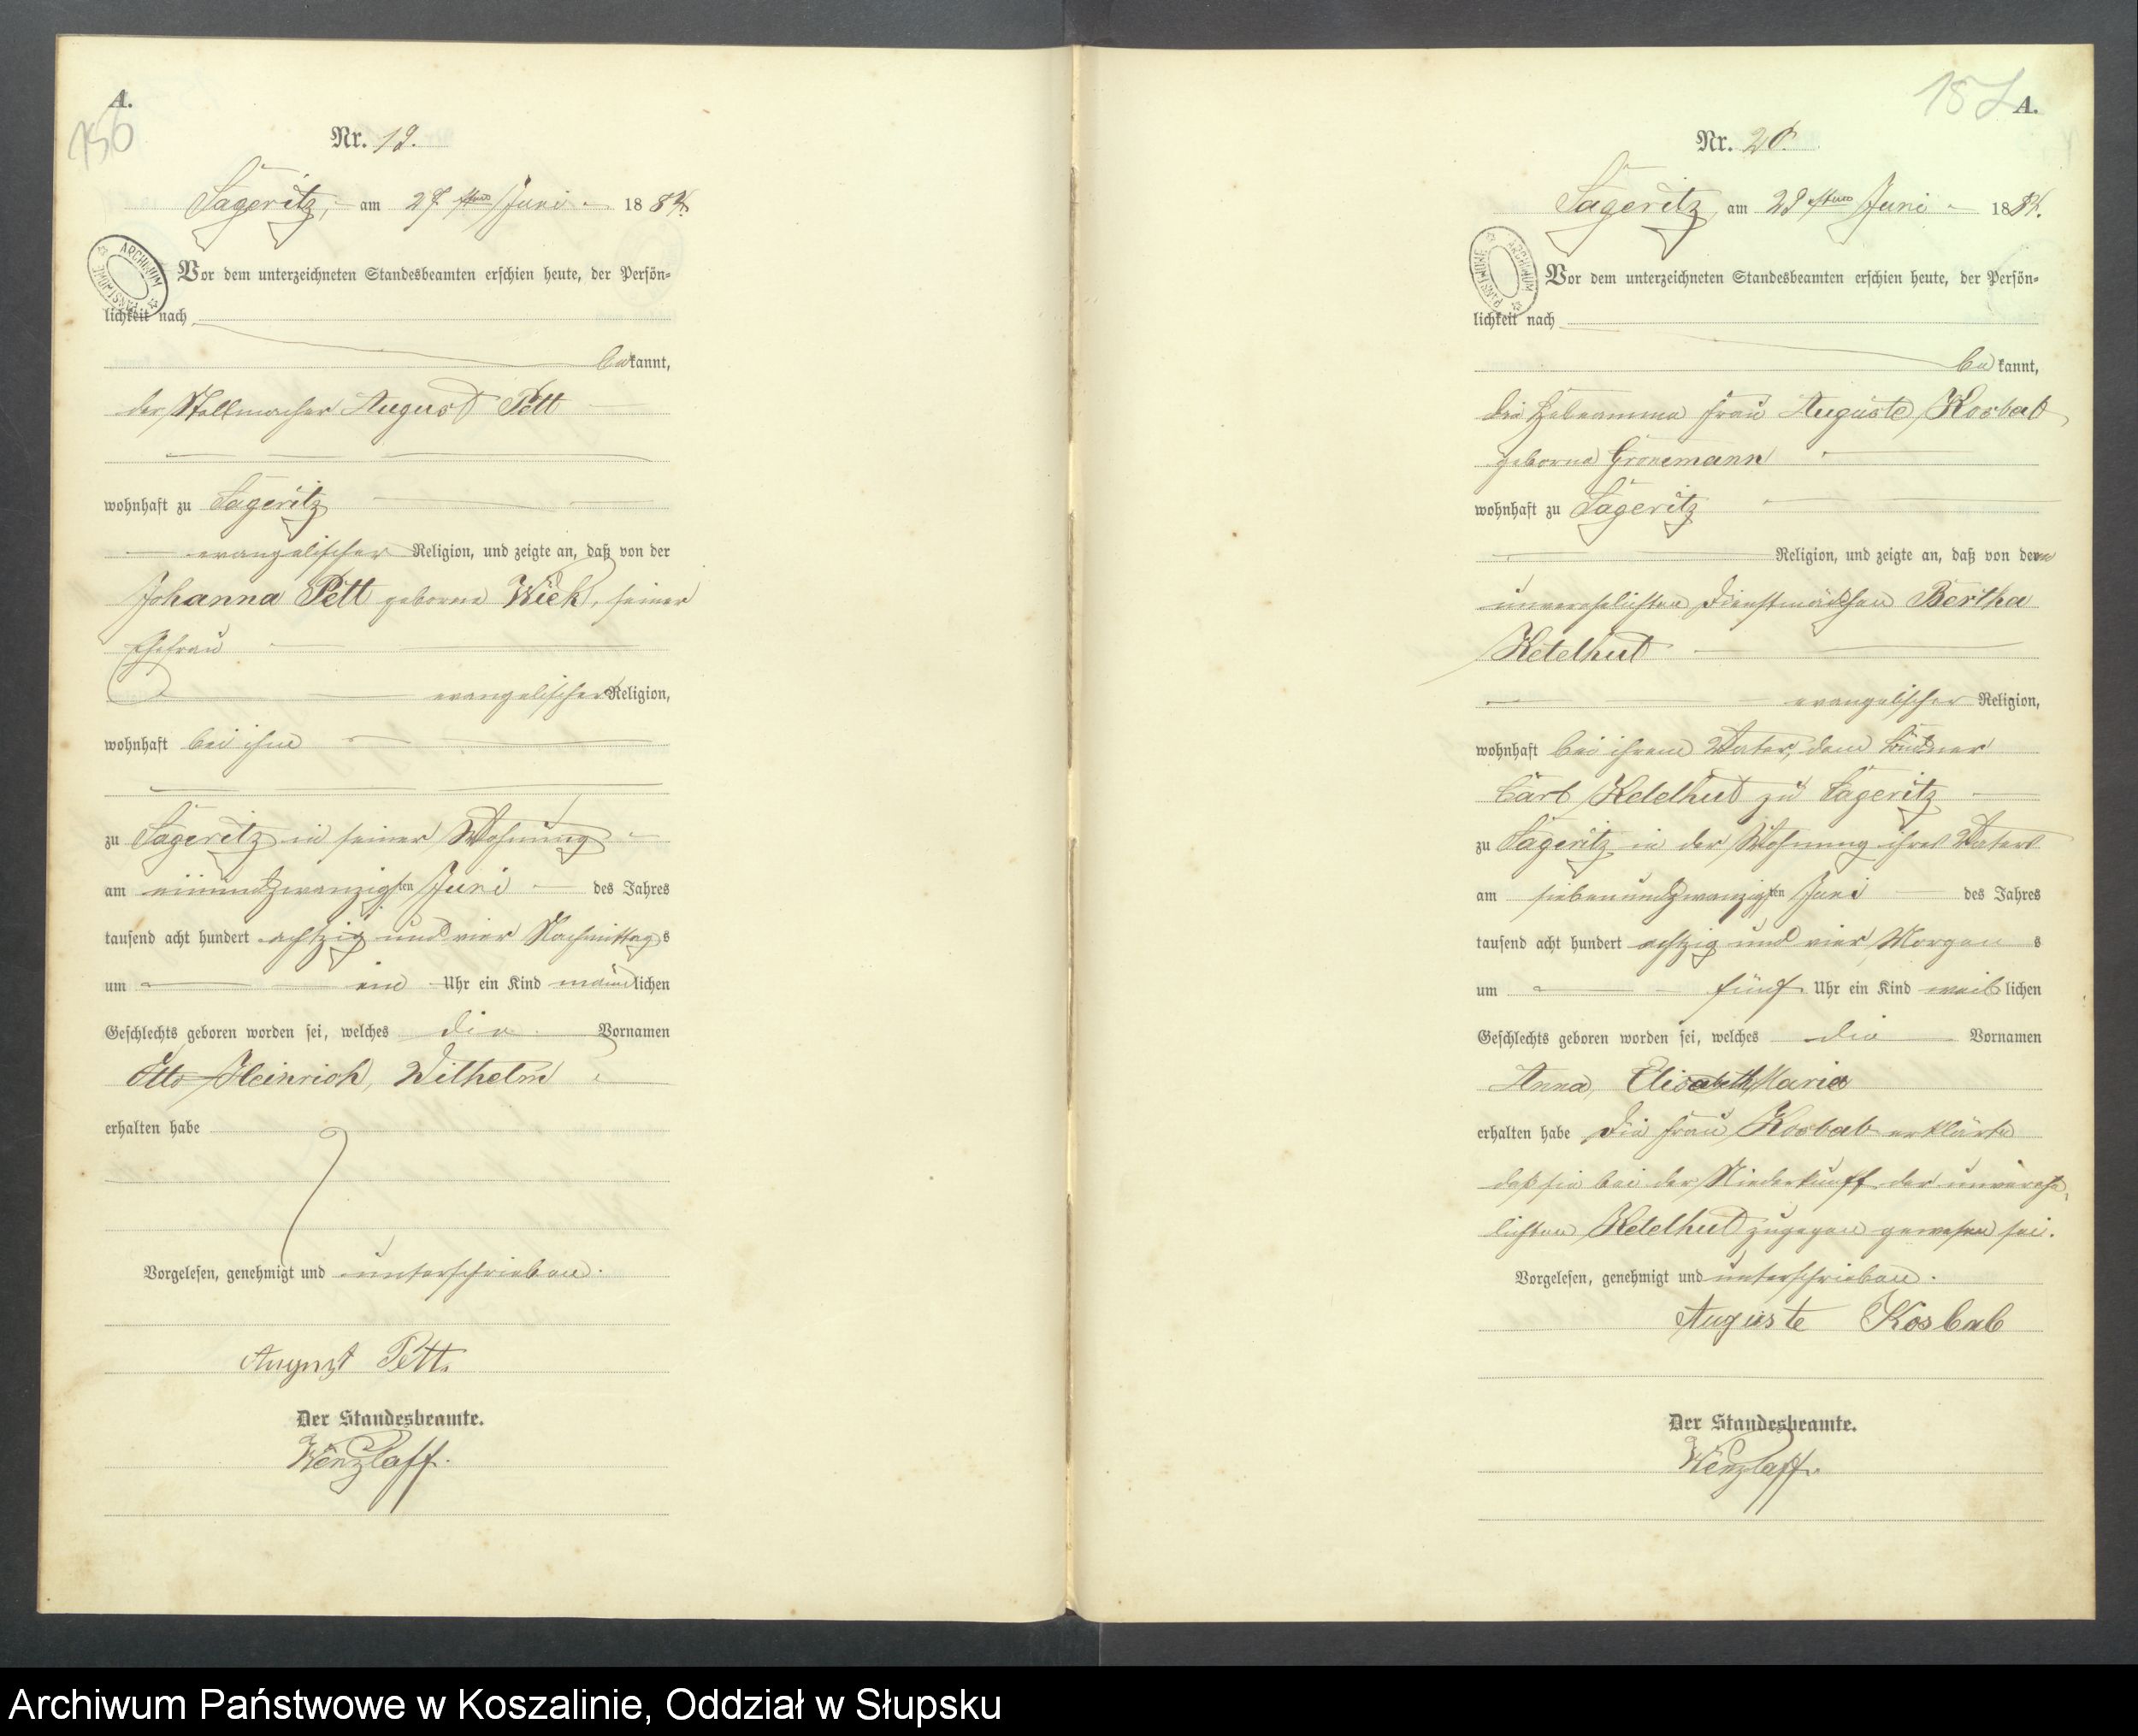 A.
156
Nr. 19.
Sageritz, am 27sten Juni 1884.
ARCHIWUM PAŃSTWOWE
Vor dem unterzeichneten Standesbeamten erschien heute, der Persön-
lichkeit nach
bekannt,
der Stellmacher August Pett
wohnhaft zu Sageritz
evangelischer Religion, und zeigte an, daß von der
Johanna Pett geborne Wieck, seiner
Ehefrau
evangelischer Religion,
wohnhaft bei ihm
zu Sageritz in seiner Wohnung
am einundzwanzigsten Juni des Jahres
tausend acht hundert achtzig und vier Nachmittags
um ein Uhr ein Kind männlichen
Geschlechts geboren worden sei, welches die Vornamen
Otto Heinrich, Wilhelm
erhalten habe
Vorgelesen, genehmigt und unterschrieben.
August Pett.
Der Standesbeamte.
Wenzlaff.
157
A.
Nr. 20.
Sageritz, am 29sten Juni 1884.
ARCHIWUM PAŃSTWOWE
Vor dem unterzeichneten Standesbeamten erschien heute, der Persön-
lichkeit nach
bekannt,
die Hebeamme Frau Auguste Kosbab
geborne Gronemann
wohnhaft zu Sageritz
Religion, und zeigte an, daß von der
unverehelichten Dienstmädchen Bertha
Ketelhut
evangelischer Religion,
wohnhaft bei ihrem Vater, dem Büdner
Carl Ketelhut zu Sageritz
zu Sageritz in der Wohnung ihres Vaters
am siebenundzwanzigsten Juni des Jahres
tausend acht hundert achtzig und vier Morgens
um fünf Uhr ein Kind weiblichen
Geschlechts geboren worden sei, welches die Vornamen
Anna, Elisabeth Maria
erhalten habe Die Frau Kosbab erklärte
daß sie bei der Niederkunft der unverehe-
lichten Ketelhut zugegen gewesen sei.
Vorgelesen, genehmigt und unterschrieben.
Auguste Kosbab
Der Standesbeamte.
Wenzlaff.
Archiwum Państwowe w Koszalinie, Oddział w Słupsku